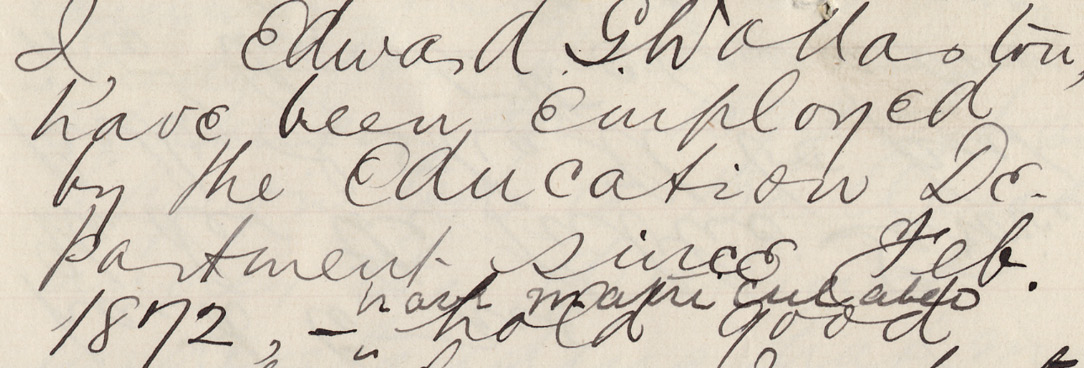 I, Edward G. Wollaston,
have been employed
by the Education De-
partment since Feb.
have matriculated
1872, – hold good